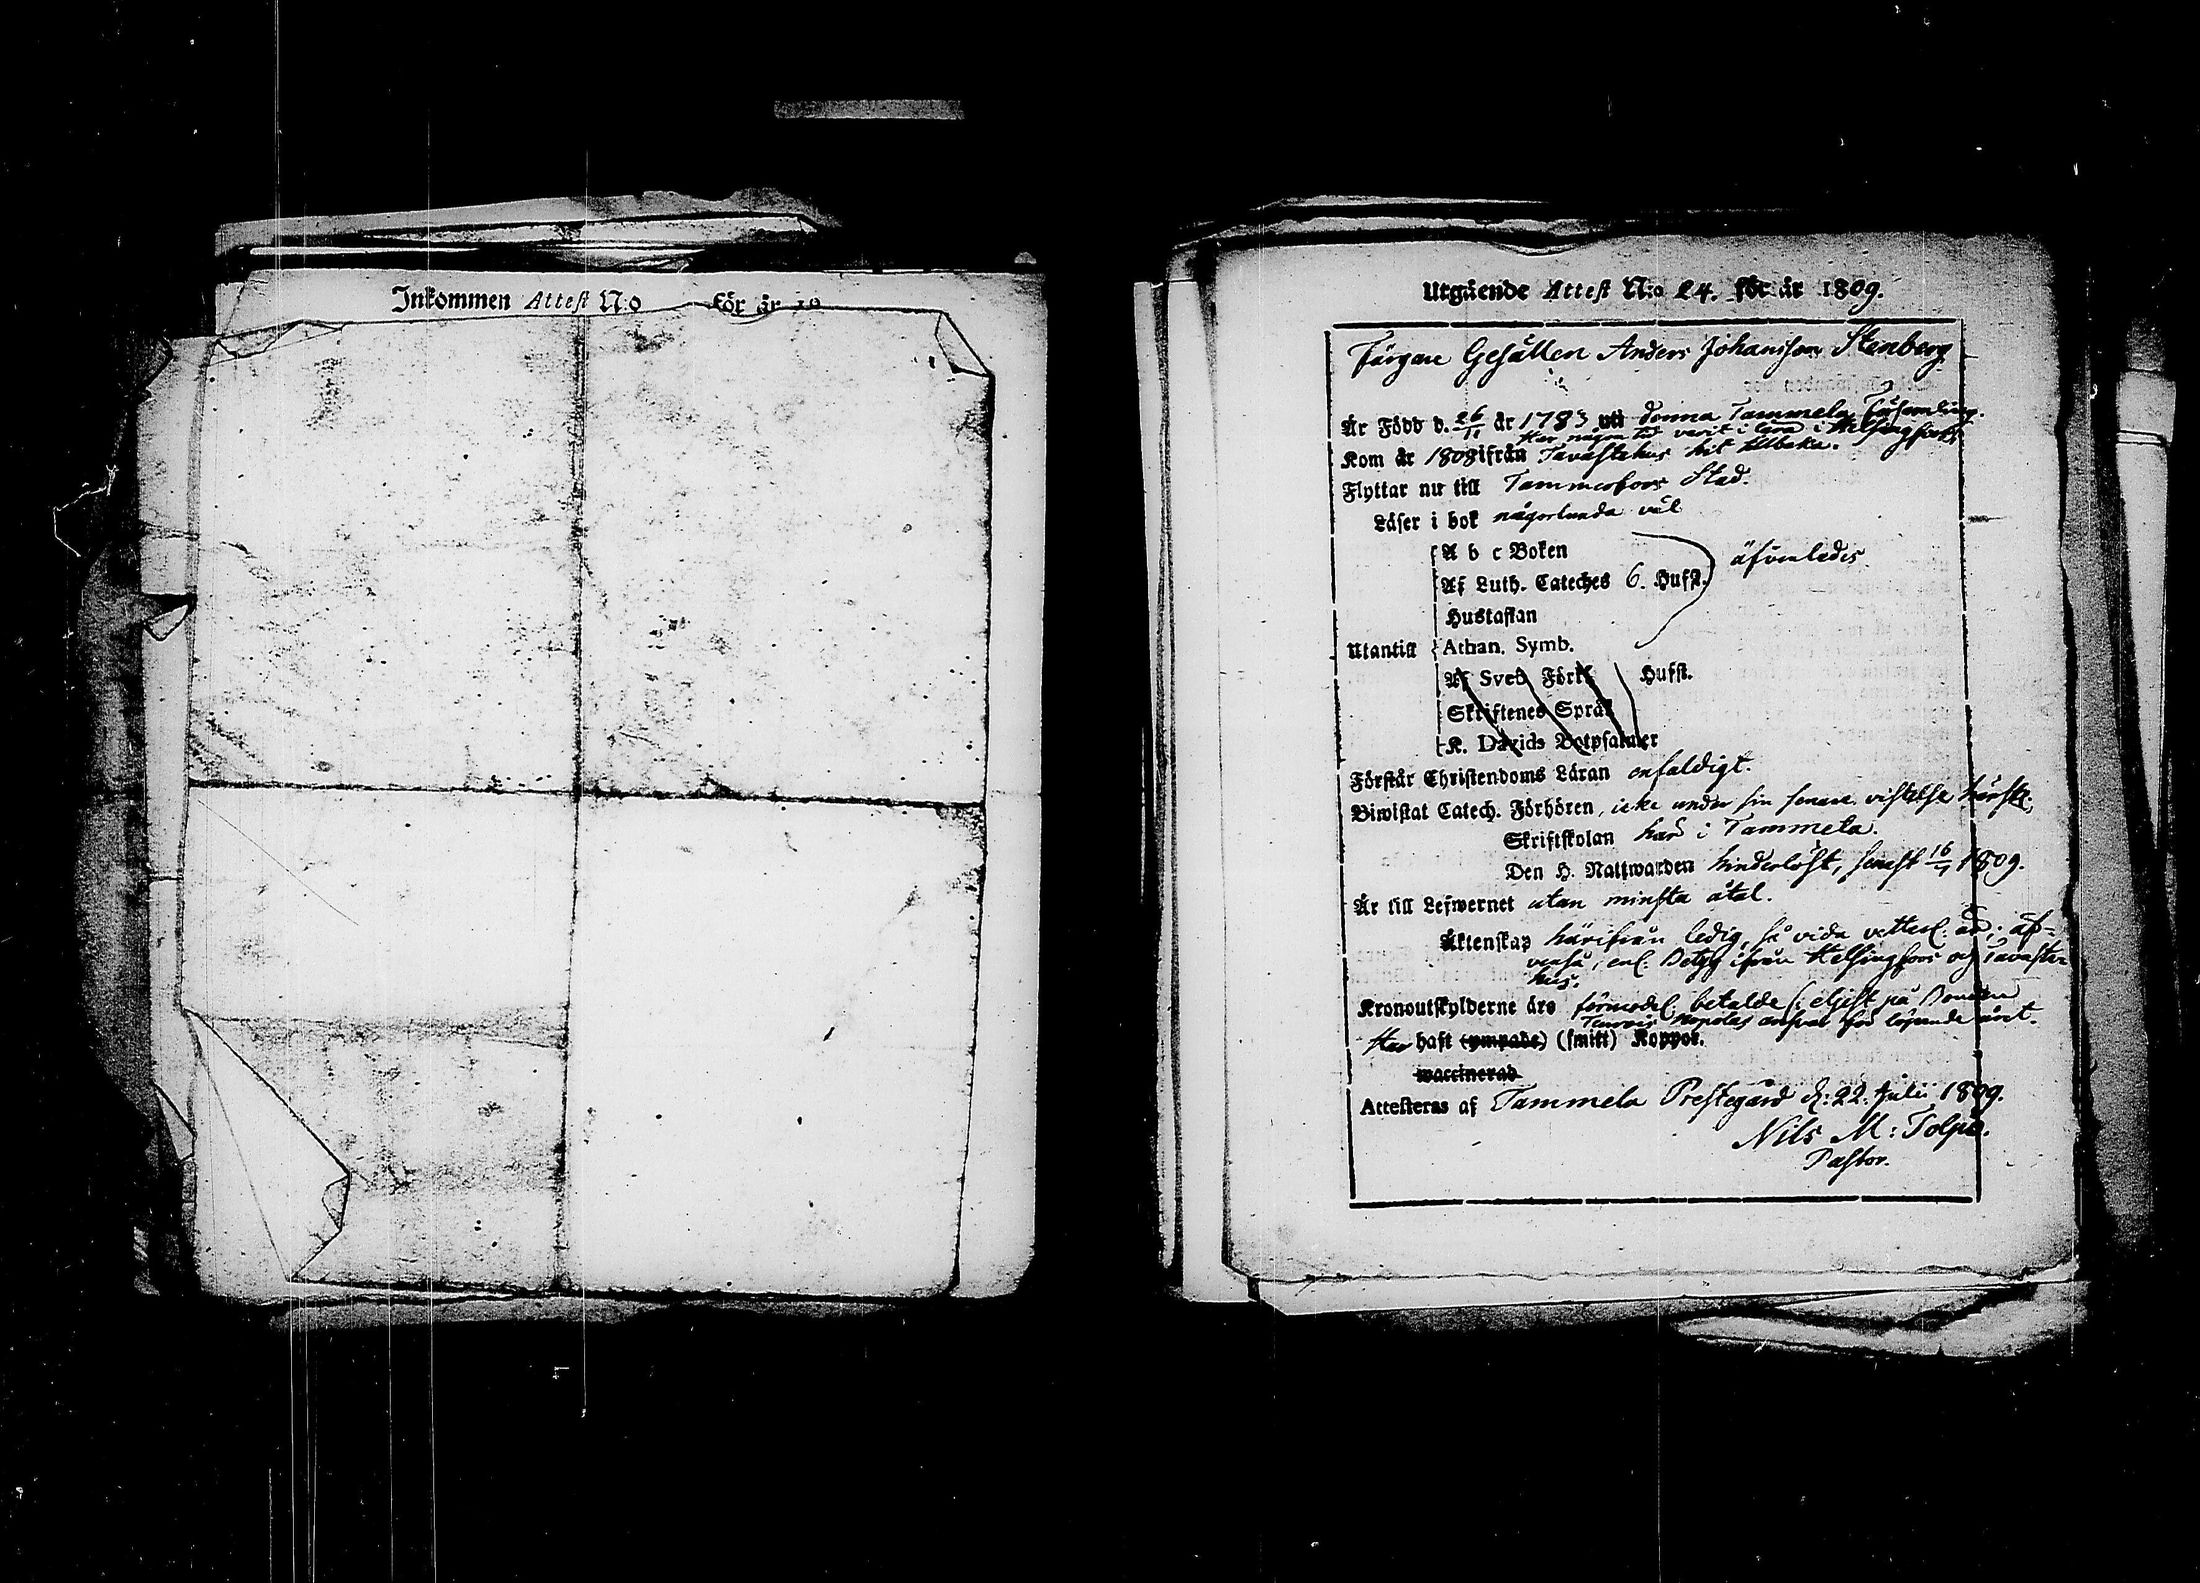 Inkommen Attest N:o för år 18
Utgående Attest N:o 24. för år 1809.
Färgare Gesällen Anders Johansson Stenberg
Är Född d. 26/11 år 1783 uti denna Tammela Församling.
Har någon tid varit i lära i Helsingfors,
Kom år 1808 ifrån Tavastehus hit tillbaka.
Flyttar nu till Tammerfors Stad.
Läser i bok någorlunda väl
A b c Boken
äfvenledes
Af Luth. Cateches 6. Hufst.
Hustaflan
Utantill Athan. Symb.
Af Sved. Förkl. Hufst.
Skriftenes Språk
K. Davids Botpsalmer
Förstår Christendoms Läran enfaldigt.
Biwistat Catech. Förhören, icke under sin senare vistelse härst.
Skriftskolan här i Tammela.
Den H. Nattwarden hinderlöst, senast 16/7 1809.
Är till Lefwernet utan minsta åtal.
Äktenskap härifrån ledig, så vida vetterl. är; äf-
venså, enl. Betyg ifrån Helsingfors och Tavaste-
hus.
Kronoutskylderne äro förmodel. betalde (: eljest på Bonden
ansvar för löpande året.
Har haft (ympade) (smitt) Koppor.
waccinerad
Attesteras af Tammela Prestegård d: 22. Julii 1809.
Nils M: Tolpo.
Pastor.